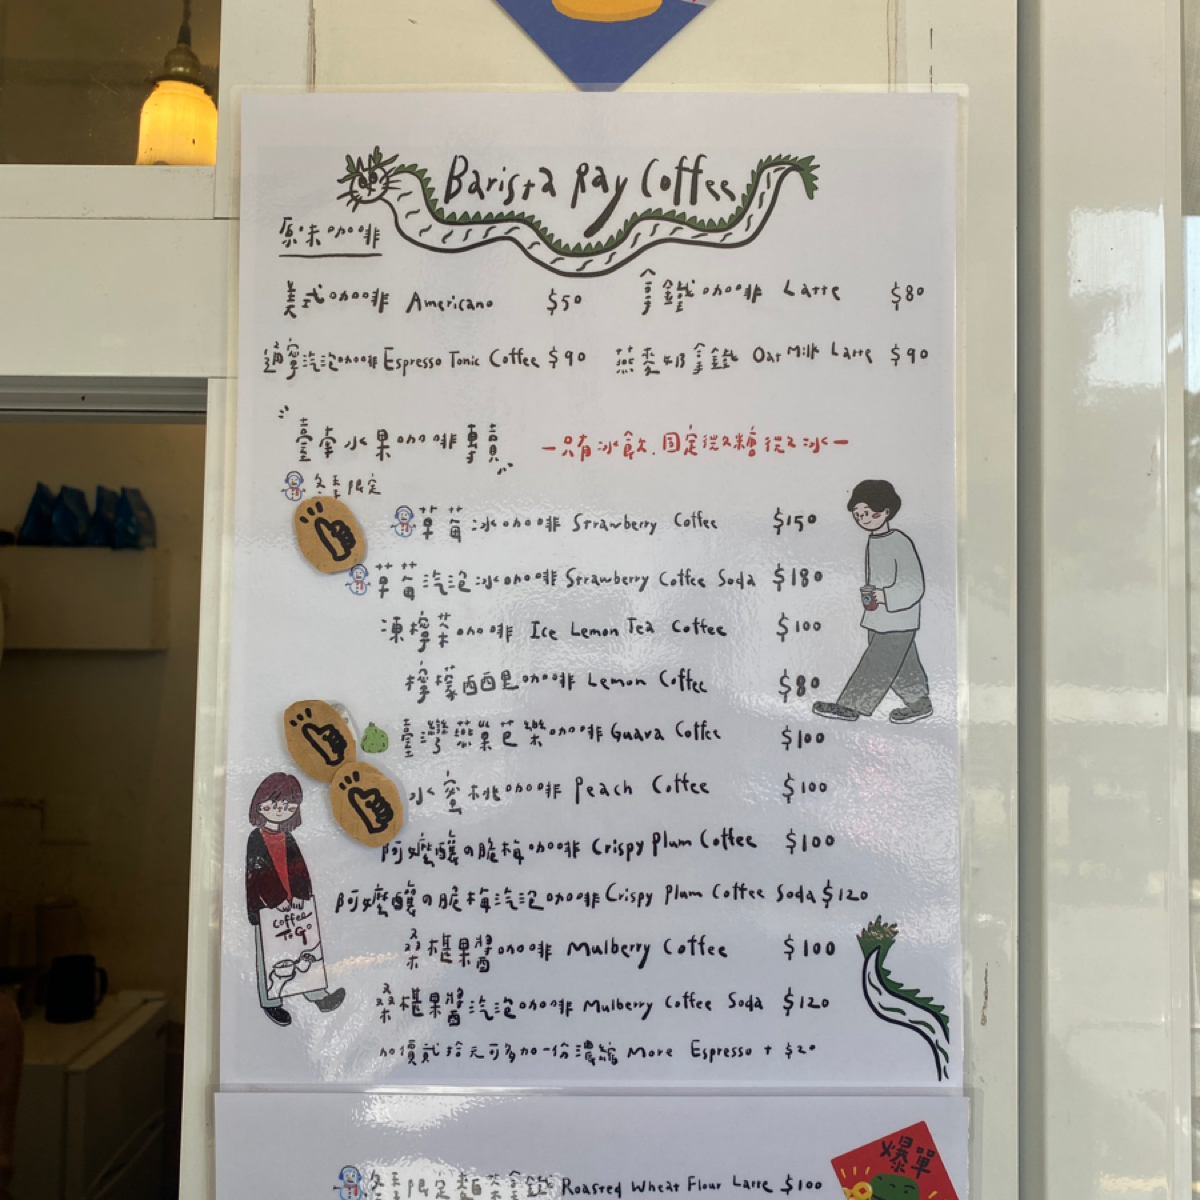 Barista Ray Coffee
原味咖啡
美式咖啡 Americano $50
拿鐵咖啡 Latte $80
通寧汽泡咖啡 Espresso Tonic Coffee $90
燕麥奶拿鐵 Oat Milk Latte $90
臺南水果咖啡專賣
一只有冰飲.固定從2糖從2冰一
冬季限定
草莓冰咖啡 Strawberry Coffee $150
草莓汽泡冰咖啡 Strawberry Coffee Soda $180
凍檸茶咖啡 Ice Lemon Tea Coffee $100
檸檬西西里咖啡 Lemon Coffee $80
臺灣燕巢芭樂咖啡 Guava Coffee $100
水蜜桃咖啡 Peach Coffee $100
阿嬤釀の脆梅咖啡 Crispy Plum Coffee $100
阿嬤釀の脆梅汽泡咖啡 Crispy Plum Coffee Soda $120
桑椹果醬咖啡 Mulberry Coffee $100
桑椹果醬汽泡咖啡 Mulberry Coffee Soda $120
加價貳拾元可多加一份濃縮 More Espresso + $20
Coffee
To Go
冬季限定麵茶拿鐵 Roasted Wheat Flour Latte $100
爆單